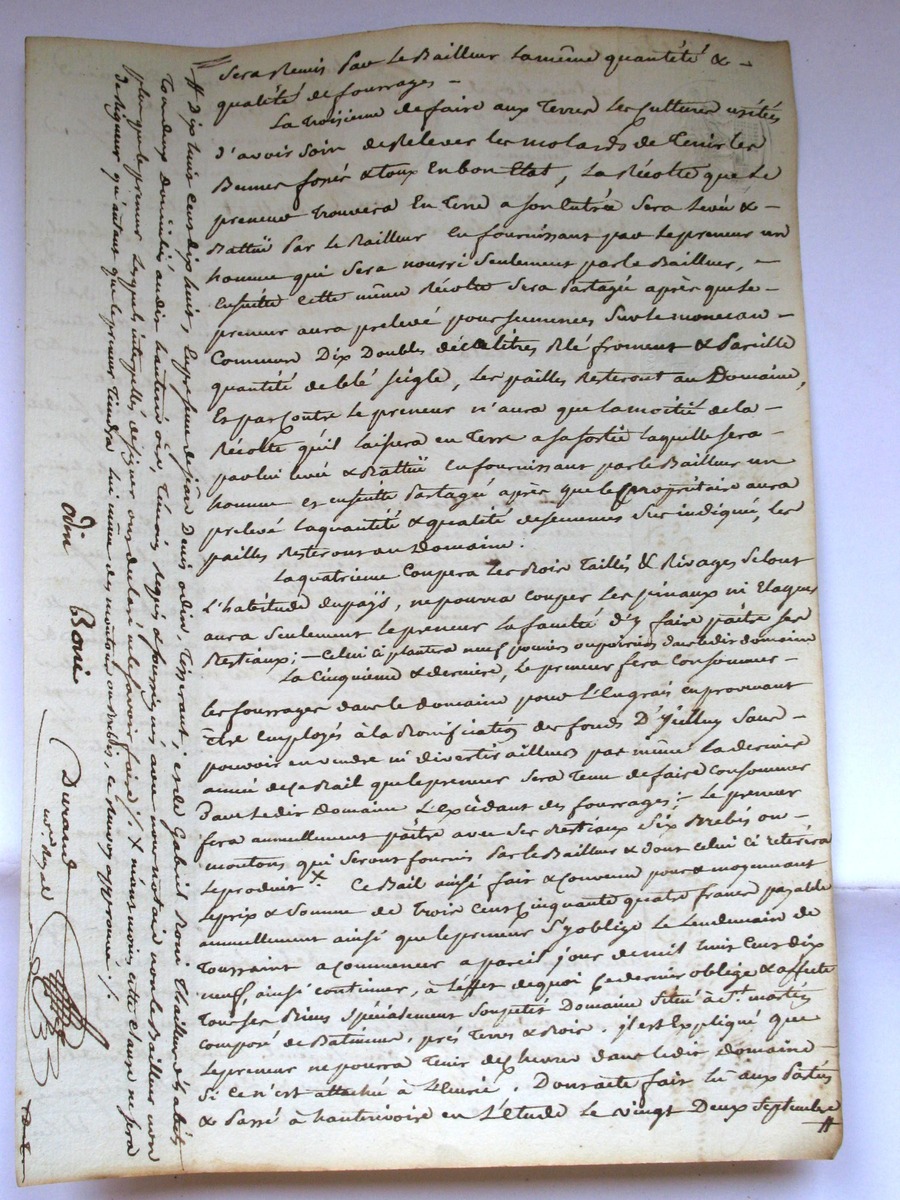 sera Remis par le Bailleur la même quantété &
qualité de fourrages -
La troisieme de faire aux Terres les Cultures usités
d'avoir soin de Rélever les molards de Tenir les
Bennes fossés & toux En bon Etat, la Récolte que le
preneur trouvera En Terre a son Entrée sera levée &
Battuë par le Bailleur En fournissant par le preneur un
homme qui sera nourri seulement par le Bailleur,
Ensuitte Cette même Récolte sera Partagée après que le
preneur aura prélevé pour semences sur le monceau
Commun Dix Doubles décalitres Blé froment & Pareille
quantité de blé seigle, les pailles Resteront au Domaine,
Et par Contre le preneur n'aura que la moitié de la
Récolte qu'il laissera en Terre a sa sortie laquelle sera
par lui levée & Battuë En fournissant par le Bailleur un
homme et ensuitte Partagée après que le propriétaire aura
prelevé la quantité & qualité de semences sus indiqué, les
pailles Resteront au Domaine.
La quatrieme Coupera les Bois Taillés & Rivages selont
l'habitude du païs, ne pourra couper les ni Elaguer
aura seulement le preneur la faculté d'y faire paître ses
Bestiaux; - Celui ci plantera neuf pomiers ou poiriers dans le dit domaine
La Cinquieme & derniere, le preneur fera Consommer
les fourrages dans le domaine pour l'Engrais en provenant
être Employés à la Bonification des fonds D'yelluy sans
pouvoir en vendre ni divertir ailleurs pas même la derniere
année de ce Bail que le preneur sera Tenu de faire Consommer
Dans le dit Domaine L'excèdant des fourrages; - le preneur
fera annuellement paître avec ses Bestiaux six Brebis ou
moutons qui seront fournis par le Bailleur & dont celui ci retirera
le produit X Ce Bail ainsi fait & Convenu pour & moyennant
le prix & Somme de Trois Cent Cinquante quatre francs payable
annuellement ainsi que le preneur s'y oblige le Lendemain de
Toussaint a commencer a pareil jour de mil huit Cent dix
neuf, ainsi continuer, à l'effet de quoi Ce dernier oblige & affecte
Tous ses Biens Spécialement Son Domaine Situé à St. martin
composé de Batiment, prés Terres & Bois. y est Expliqué que
le preneur ne pourra Tenir des heures dans le dit domaine
Si Ce n'est attaché à l'Ecurie. Dont acte fait lu aux Parties
& Passé à hauterivoire en L'Etude le vingt Deux septembre
#
# Dix huit cent dix huit, En présence de jean Denis odin, Tisserant, et de Gabriel Boni Tailleur d'habits
Tous deux Domiciliés audit hauterivoire, Témoins Requis & soussignés, avec nous notaire non le Bailleur non
plus que le preneur lesquels interpellés de signer ont declaré ne le savoir faire /. X mais moins cette Clause ne sera
de rigueur qu'autant que le preneur Tiendra lui même des moutons ou brebis, ce Renvoy approuvé /.
odin Bonie Durand
nre. Royal